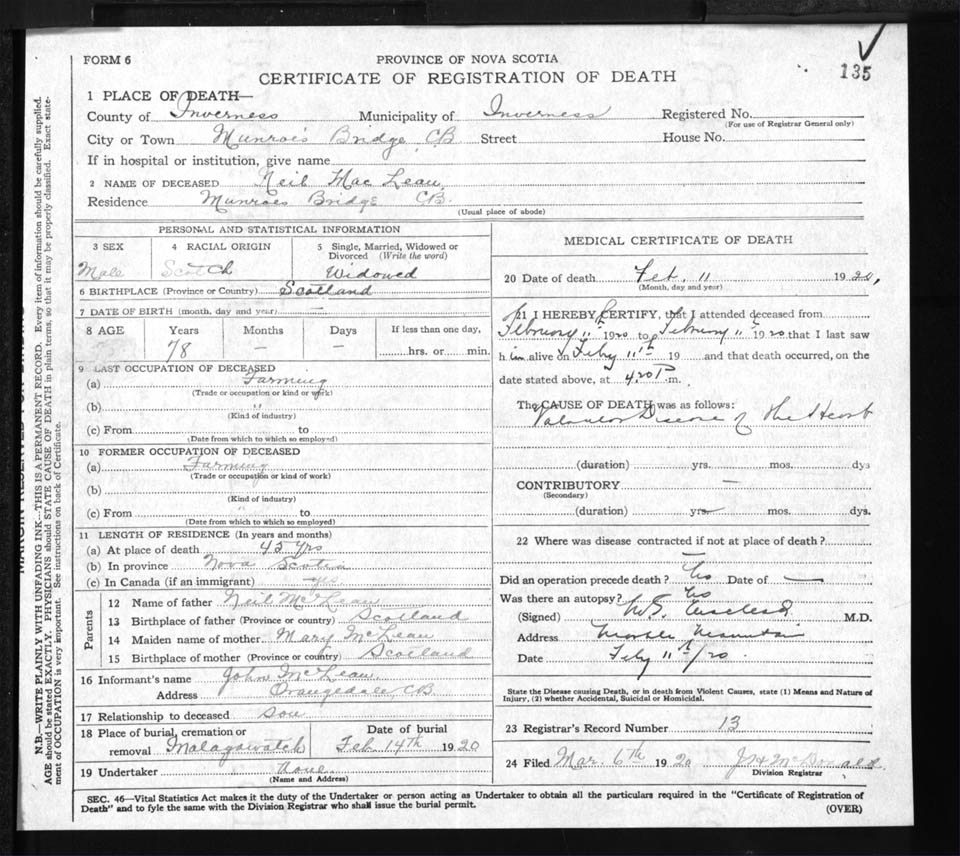 FORM 6
PROVINCE OF NOVA SCOTIA
135
CERTIFICATE OF REGISTRATION OF DEATH
1 PLACE OF DEATH—
County of Inverness Municipality of Inverness Registered No.
(For use of Registrar General only)
City or Town Munroe's Bridge CB Street House No.
If in hospital or institution, give name
2 NAME OF DECEASED Neil Mac Lean
Residence Munroes Bridge CB.
(Usual place of abode)
PERSONAL AND STATISTICAL INFORMATION
3 SEX
Male
4 RACIAL ORIGIN
Scotch
5 Single, Married, Widowed or
Divorced (Write the word)
Widowed
6 BIRTHPLACE (Province or Country) Scotland
7 DATE OF BIRTH (month, day and year) —
8 AGE Years Months Days If less than one day,
78 — — hrs. or min.
9 LAST OCCUPATION OF DECEASED
(a) Farming
(Trade or occupation or kind of work)
(b) "
(Kind of industry)
(c) From to
(Date from which to which so employed)
10 FORMER OCCUPATION OF DECEASED
(a) Farming
(Trade or occupation or kind of work)
(b)
(Kind of industry)
(c) From to
(Date from which to which so employed)
11 LENGTH OF RESIDENCE (In years and months)
(a) At place of death 45 yrs
(b) In province Nova Scotia
(c) In Canada (if an immigrant) yes
Parents
12 Name of father Neil McLean
13 Birthplace of father (Province or country) Scotland
14 Maiden name of mother Mary McLean
15 Birthplace of mother (Province or country) Scotland
16 Informant's name John McLean
Address Orangedale CB
17 Relationship to deceased son
18 Place of burial, cremation or
removal Malagawatch
Date of burial
Feb 14th 1920
19 Undertaker none
(Name and Address)
MEDICAL CERTIFICATE OF DEATH
20 Date of death Feb. 11 1920,
(Month, day and year)
21 I HEREBY CERTIFY, that I attended deceased from
February 11th 1920 to February 11th 1920 that I last saw
h im alive on Feby 11th 19 and that death occurred, on the
date stated above, at 4.20 P m.
The CAUSE OF DEATH was as follows:
Valvular Disease of the Heart
(duration) yrs. mos. dys
CONTRIBUTORY —
(Secondary)
(duration) yrs. mos. dys.
22 Where was disease contracted if not at place of death?
—
Did an operation precede death? No Date of —
Was there an autopsy? No
(Signed) M.D.
Address Marble Mountain
Date Feby 11th/20
State the Disease causing Death, or in death from Violent Causes, state (1) Means and Nature of
Injury, (2) whether Accidental, Suicidal or Homicidal.
23 Registrar's Record Number 13
24 Filed Mar. 6th 1920 McDonald
Division Registrar
SEC. 46—Vital Statistics Act makes it the duty of the Undertaker or person acting as Undertaker to obtain all the particulars required in the "Certificate of Registration of
Death" and to fyle the same with the Division Registrar who shall issue the burial permit.
(OVER)
N.B.—WRITE PLAINLY WITH UNFADING INK—THIS IS A PERMANENT RECORD. Every item of information should be carefully supplied.
AGE should be stated EXACTLY. PHYSICIANS should STATE CAUSE OF DEATH in plain terms, so that it may be properly classified. Exact state-
ment of OCCUPATION is very important. See instructions on back of Certificate.